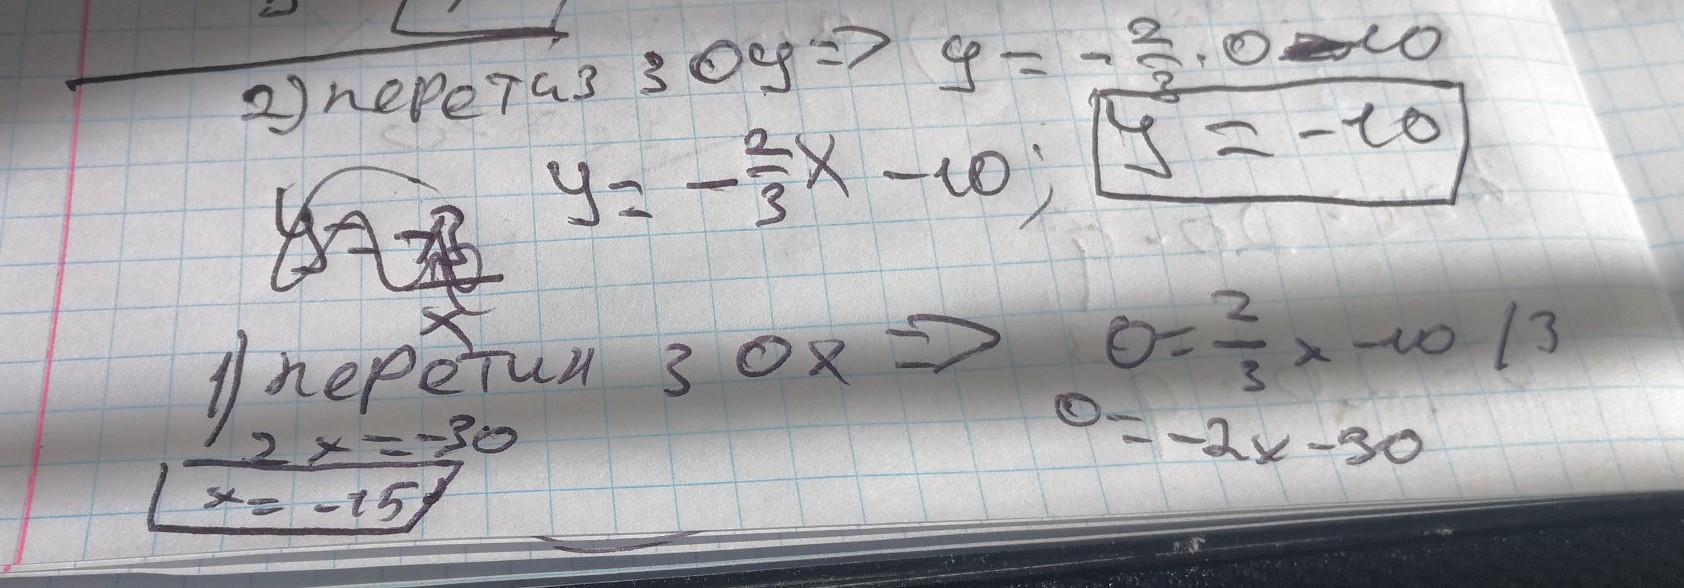 2) перетиз з Oy => y = - 2/3 · 0 - 10
y = - 2/3 x - 10; y = -10
1) перетин з Ox => 0 = 2/3 x - 10 / 3
0 = -2x - 30
2x = -30
x = -15